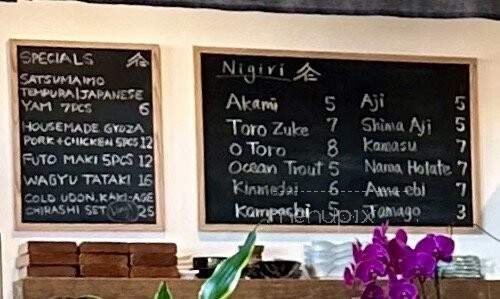 SPECIALS
SATSUMAIMO
TEMPURA/JAPANESE
YAM 7PCS 6
HOUSEMADE GYOZA
PORK+CHICKEN 5PCS 12
FUTO MAKI 5PCS 12
WAGYU TATAKI 16
COLD UDON, KAKI-AGE
CHIRASHI SET 25
Nigiri
Akami 5
Toro Zuke 7
O Toro 8
Ocean Trout 5
Kinmedai 6
Kampachi 5
Aji 5
Shima Aji 5
Kamasu 7
Nama Hotate 7
Ama ebi 7
Tamago 3
menupix